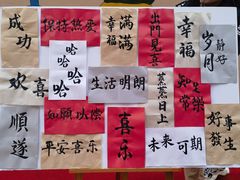 成功
保持热爱
幸福
满满
出門見喜
幸福
岁月
静好
欢喜
哈哈哈哈
生活明朗
蒸蒸日上
知足
常樂
順遂
如愿以偿
平安喜乐
喜乐
未来可期
好事
發生